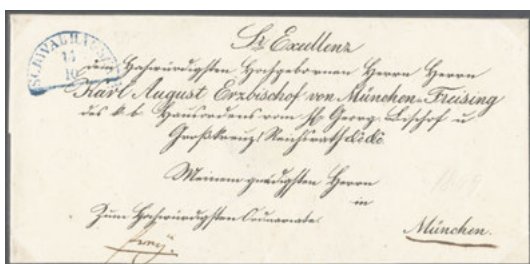 SCHWABHAUSEN
11
10
Sr. Excellenz
dem Hochwürdigsten Hochgebornen Herrn Herrn
Karl August Erzbischof von München-Freising
des k. b. Hausordens vom hl. Georg, Bischof u
Großkreuz, Reichsrath
Meinem gnädigsten Herrn
in
Zum Hochwürdigsten Ordinariate.
München.
frey.